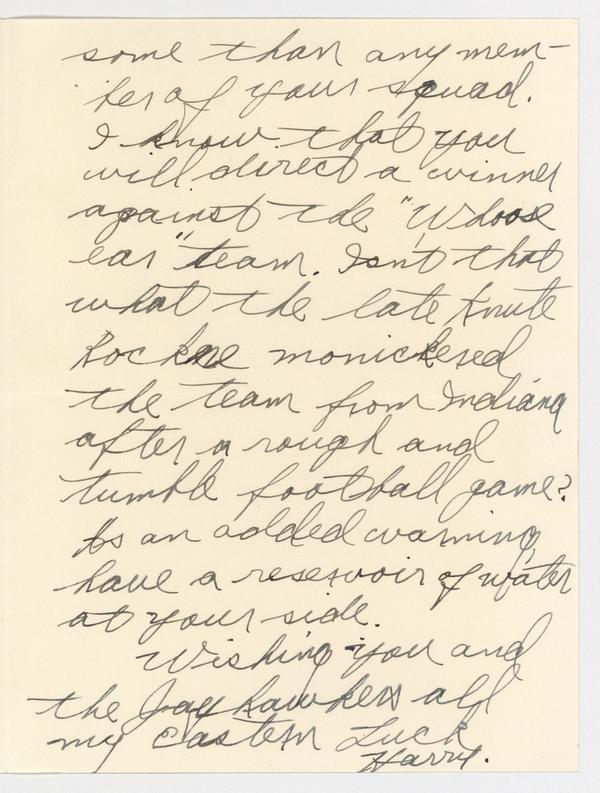 some than any mem-
ber of your squad.
I know that you
will direct a winner
against the "Whoose
ear" team. Isn't that
what the late Knute
Rockne monickered
the team from Indiana
after a rough and
tumble football game?
As an added warning,
have a reservoir of water
at your side.
Wishing you and
the Jay hawkers all
my Eastern Luck
Harry.